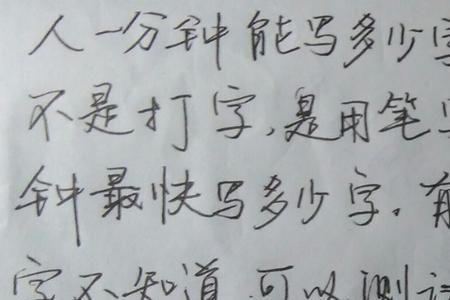 人一分钟能写多少字
不是打字,是用笔写
钟最快写多少字.有
字不知道.可以测试